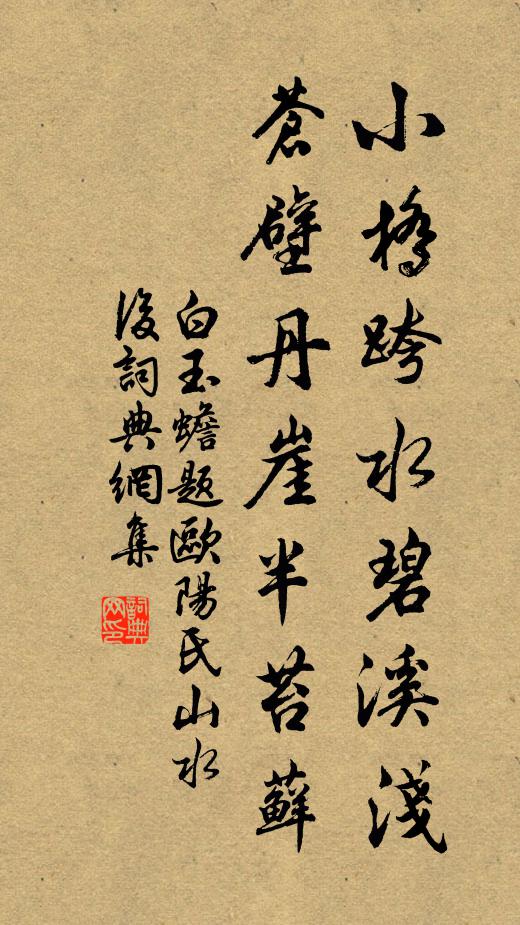 小橋跨水碧溪淺
蒼壁丹崖半苔蘚
白玉蟾題歐陽氏山水
後詞典網集
詞典網印